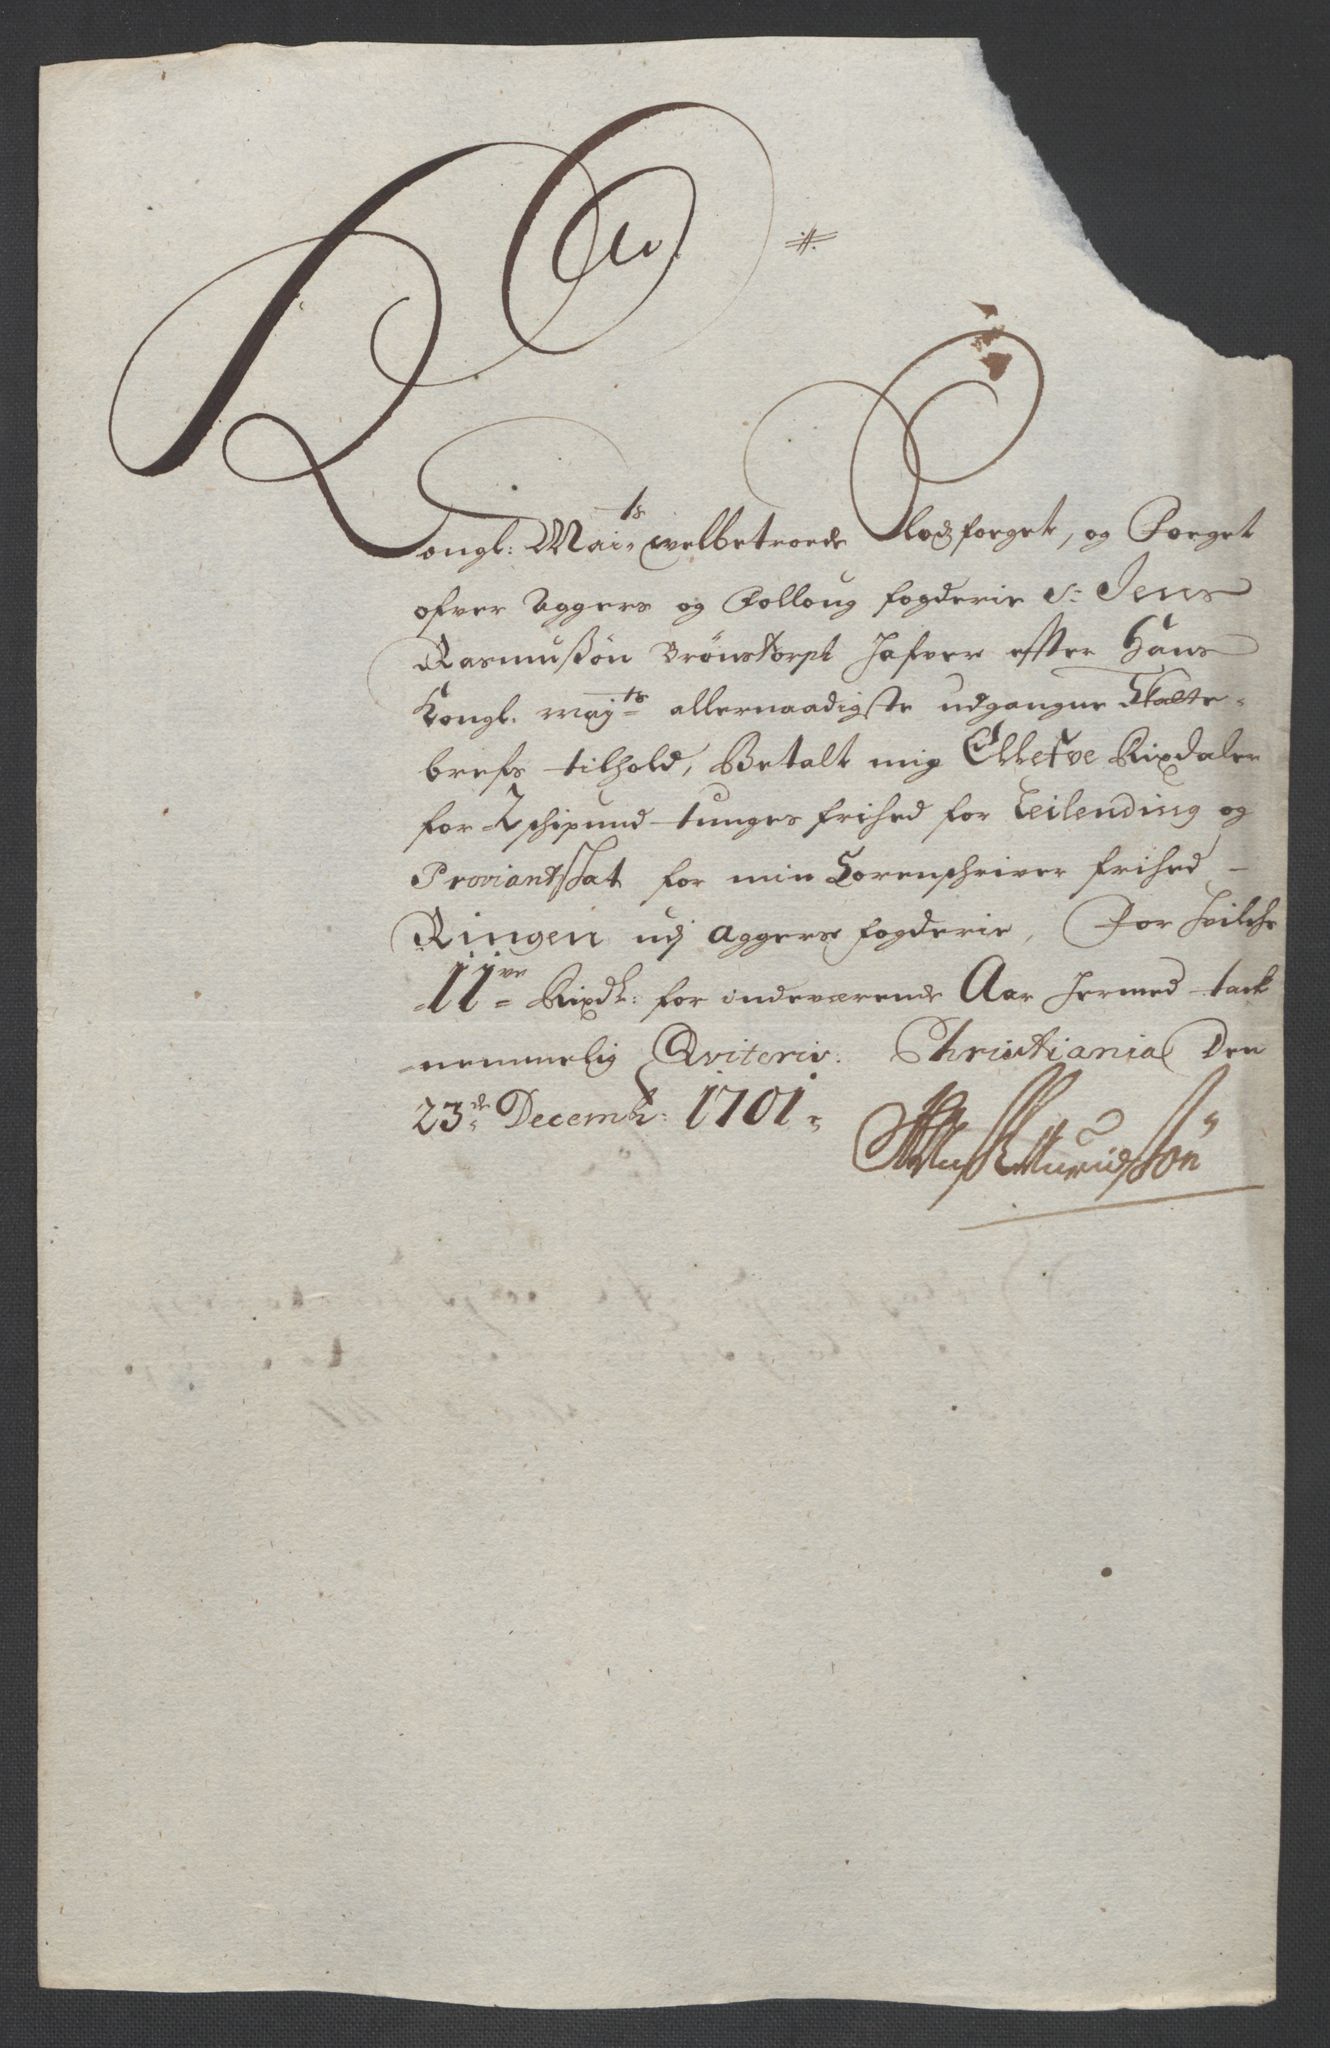 Kongl: Mai:ts welbetroede Slodzfoget, og Foeget
ofver Aggers og Folloug fogderie Sr Jens
Rasmusßøn Brønstorph hafver effter Hans
Kongl. may:ts allernaadigste udgangne Skatte-
brefs tilhold, Betalt mig Ellefve Rixdaler
for 2 schipund tunges frihed for Leilending og
Proviantskat for min Sorenschriver frihed -
Ringen udj Aggers fogderie, For hvilche
11ve Rixdl: for indeværende Aar hermed tack
nemmelig Qviterer. Christiania Den
23de Decembr: 1701.